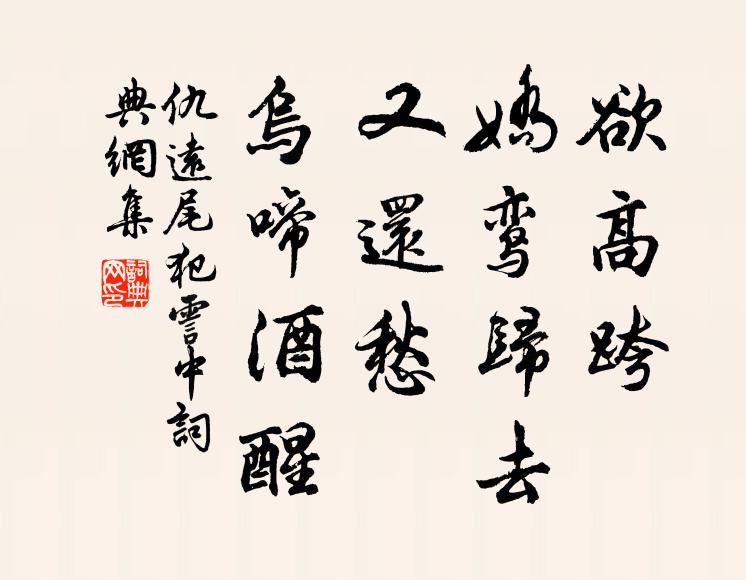 欲高跨
嬌鸾歸去
又還愁
烏啼酒醒
仇遠尾犯霅中詞
典網集
詞典
网印